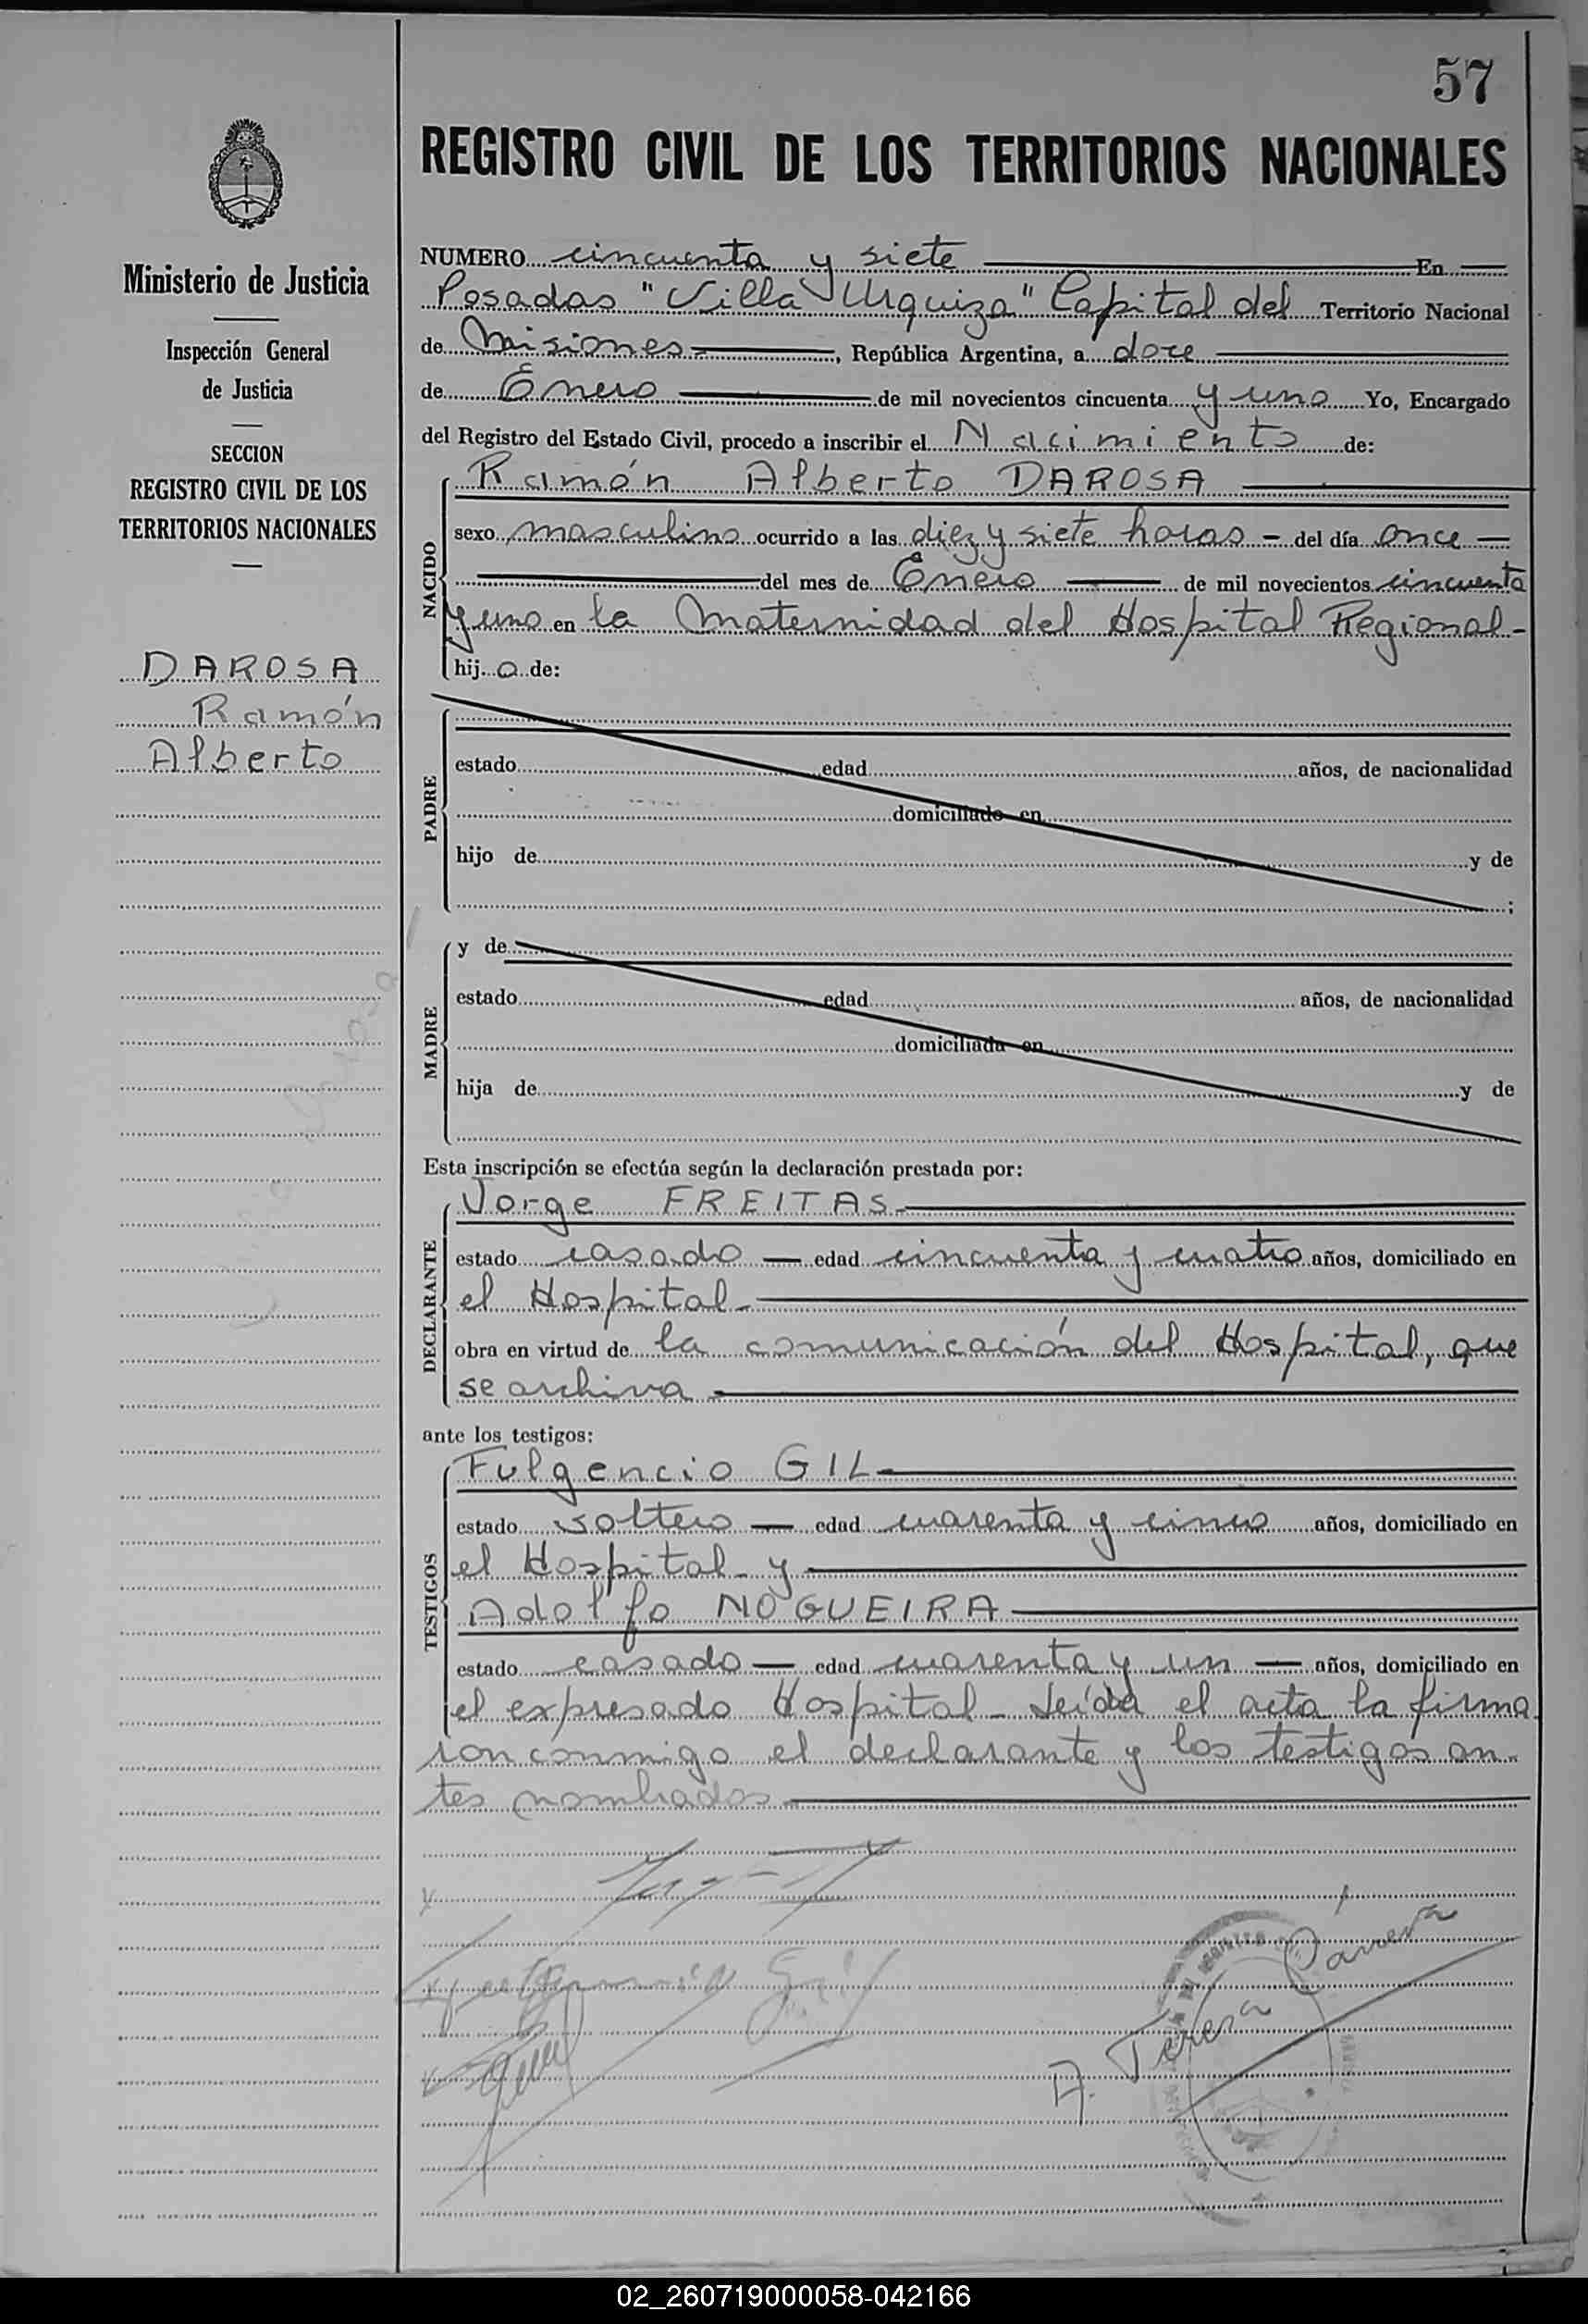 57
REGISTRO CIVIL DE LOS TERRITORIOS NACIONALES
Ministerio de Justicia
Inspección General
de Justicia
SECCION
REGISTRO CIVIL DE LOS
TERRITORIOS NACIONALES
DAROSA
Ramón
Alberto
NUMERO cincuenta y siete En
Posadas "Villa Urquiza" Capital del Territorio Nacional
de Misiones, República Argentina, a doce
de Enero de mil novecientos cincuenta y uno Yo, Encargado
del Registro del Estado Civil, procedo a inscribir el Nacimiento de:
NACIDO
Ramón Alberto DAROSA
sexo masculino ocurrido a las diez y siete horas - del día once
del mes de Enero de mil novecientos cincuenta
y uno en la Maternidad del Hospital Regional-
hij o de:
PADRE
estado edad años, de nacionalidad
domiciliado en
hijo de y de
;
MADRE
y de
estado edad años, de nacionalidad
domiciliada en
hija de y de
Esta inscripción se efectúa según la declaración prestada por:
DECLARANTE
Jorge FREITAS
estado casado edad cincuenta y cuatro años, domiciliado en
el Hospital
obra en virtud de la comunicación del Hospital, que
se archiva
ante los testigos:
TESTIGOS
Fulgencio GIL
estado soltero edad cuarenta y cinco años, domiciliado en
el Hospital y
Adolfo NOGUEIRA
estado casado edad cuarenta y un años, domiciliado en
el expresado Hospital - Leída el acta la firma
ron conmigo el declarante y los testigos an-
tes nombrados
Gil
A. Teresa
02_260719000058-042166